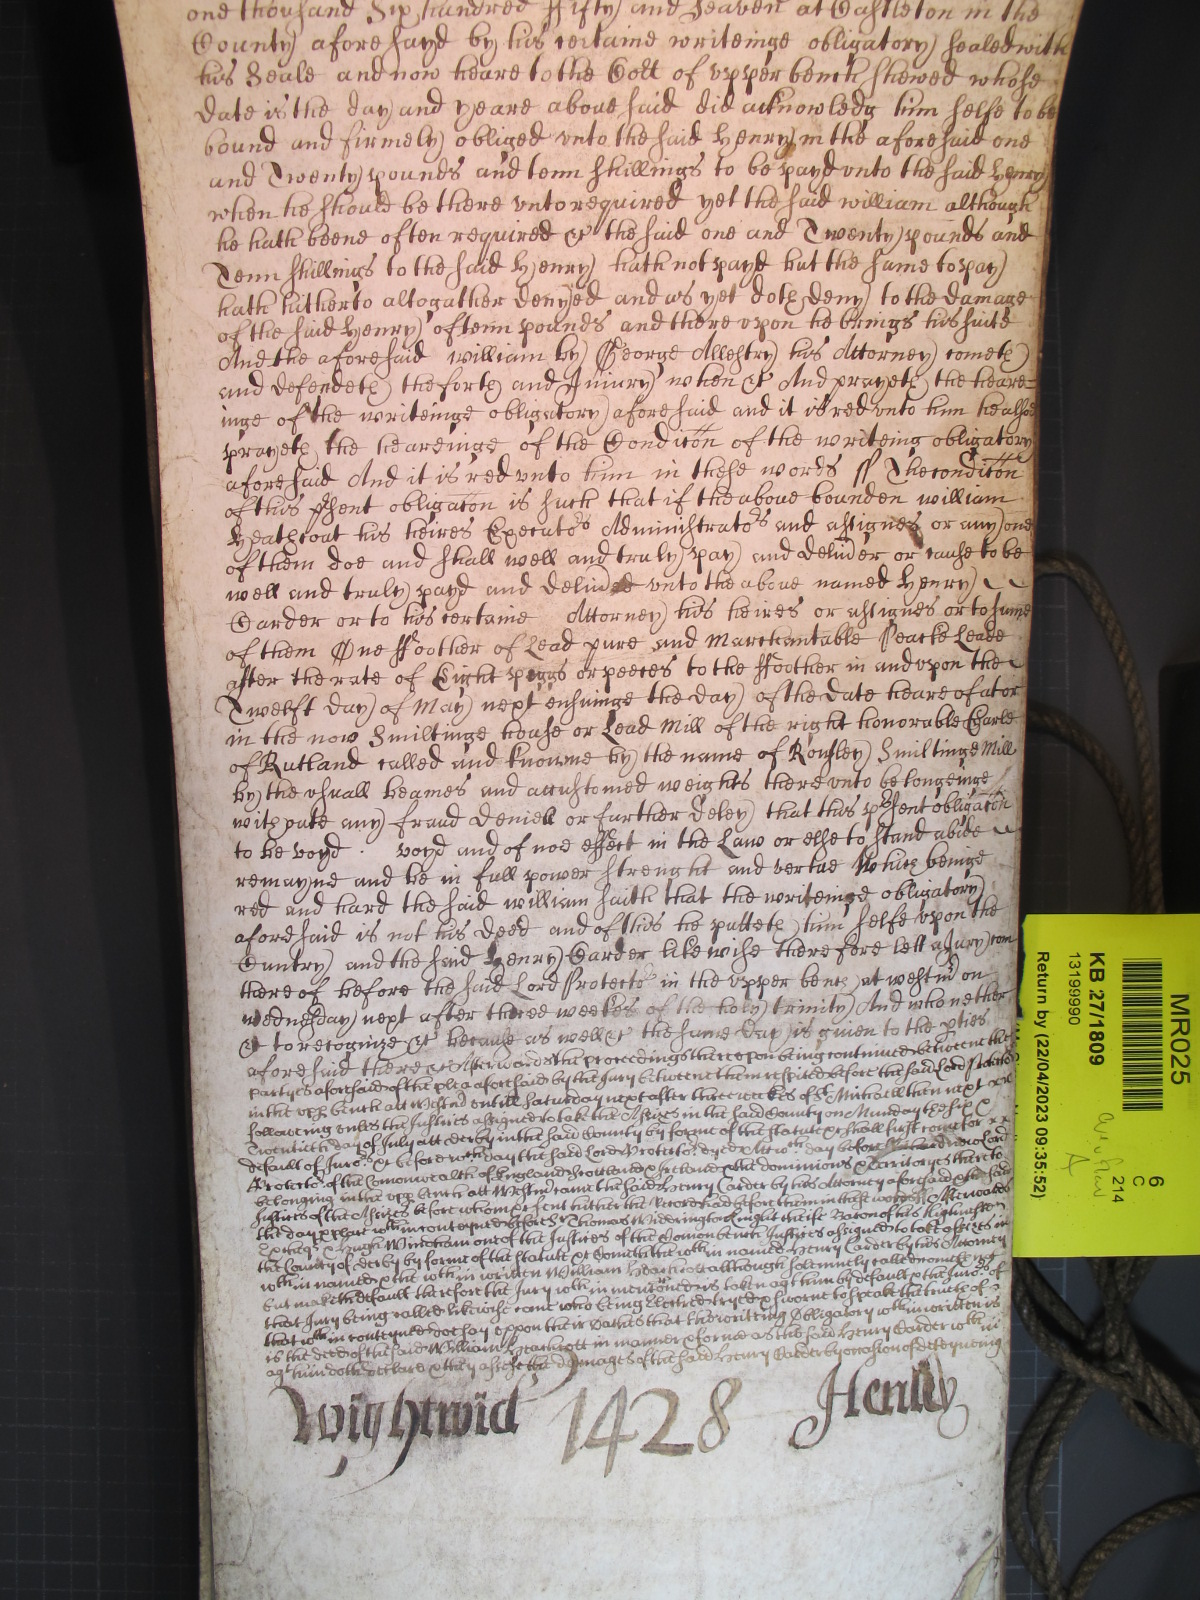 one thousand Six hundred ffifty and Seaven at Castleton in the
County aforesayd by his certaine writeinge obligatory sealed with
his Seale and now heare to the Cott of vpper bench shewed whose
date is the day and yeare aboue said did acknowledg him selfe to be
bound and firmely obliged vnto the said Henry in the aforesaid one
and Twenty pounds and tenn shillings to be payd vnto the said Henry
when he should be there vnto required yet the said william although
he hath beene often required &c the said one and Twenty pounds and
Tenn shillings to the said Henry hath not payd but the same to pay
hath hitherto altogather denyed and as yet doth deny to the damage
of the said Henry of tenn pounds and there vpon he brings his suite
And the aforesaid william by George Allestry his Attorney cometh
and defendeth the forth and Iniury when &c And prayeth the heare
inge of the writeinge obligatory aforesaid and it is red vnto him he allsoe
prayeth the heareinge of the Conditon of the writeing obligatory
aforesaid And it is red vnto him in these words ss The conditon
of this psent obligaton is such that if the aboue bounden william
Heathcoat his heires Executors Administrators and assignes or any one
of them doe and shall well and truly pay and deliuer or cause to be
well and truly payd and deliued vnto the aboue named Henry
Carder or to his certaine Attorney his heires or assignes or to some
of them One ffoother of Lead pure and Marchantable Peacke Leade
after the rate of Eight peggs or peeces to the ffoother in and vpon the
Twelft day of May next ensuinge the day of the date heare of at or
in the now Smiltinge house or Lead Mill of the right honorable Earle
of Rutland called and knowne by the name of Rowsley Smiltinge Mill
by the vsuall beames and accustomed weights there vnto belongeinge
with pute any fraud deniell or further deley that this psent obligaton
to be voyd . voyd and of noe effect in the Law or else to stand abide
remayne and be in full power strenght and vertue Which beinge
red and hard the said william saith that the writeinge obligatory
aforesaid is not his deed and of this he putteth him selfe vpon the
Cuntry and the said Henry Carder like wise therefore lett a Jury com
there of before the said Lord Protector in the vpper bench at westmr on
wednesday next after three weekes of the holy trinity And who nether
&c to recognize &c because as well &c the same day is giuen to the pties
aforesaid there &c Afterwards the proceedings thereupon being continued betweene the
partyes aforesaid of the plea aforesaid by the Jury betweene them respited before the said Lord Protector
in the vpp bench att Westmr vntill Saturday next after three weekes of St Michaell then next
followeing vnles the Justices assigned to take the Assizes in the said County on Munday the six &
Twentieth day of July att derby in the said County by forme of the statute &c shall first come for
default of Juro.rs &c before wch day the said Lord Protector dyed Att wch day before Lord
Protector of the Comonwealth of England Scotland & Ireland & the dominions & territoryes thereto
belonging in the vpp bench att Westmr came the said Henry Carder by his Attorney aforesaid & the said
Justices of the Assizes before whom &c sent hither the Record had before them in these words ss Afterwards
the day & place within conteyned before Sr Thomas Widdrington knight cheife Baron of his Highnes
& Hugh Windham one of the Justices of the Comon bench Justices assigned to take assizes in
the County of derby by forme of the statute &c Cometh the wthin named Henry Carder by his Attorney
wthin named & the wthin written William Heathcot although solemnely called cometh not
but maketh default therefore the Jury wthin mentioned is taken agt him by default & the Juro.rs of
that Jury being called likewise come who being Elected tryed & sworne to speake the truth of
that wthin conteyned doe say vppon their oathes that the writing Obligatory wthin written is
is the deed of the said William Heathcott in manner & forme as the said Henry Carder wthin
agt him doth declare & they assesse the damages of the said Henry Carder by occasion of deteyneing
Wightwick 1428 Henley
MR025
KB 27/1809
13199990
Return by (22/04/2023 09:35:52)
6
C
214
A